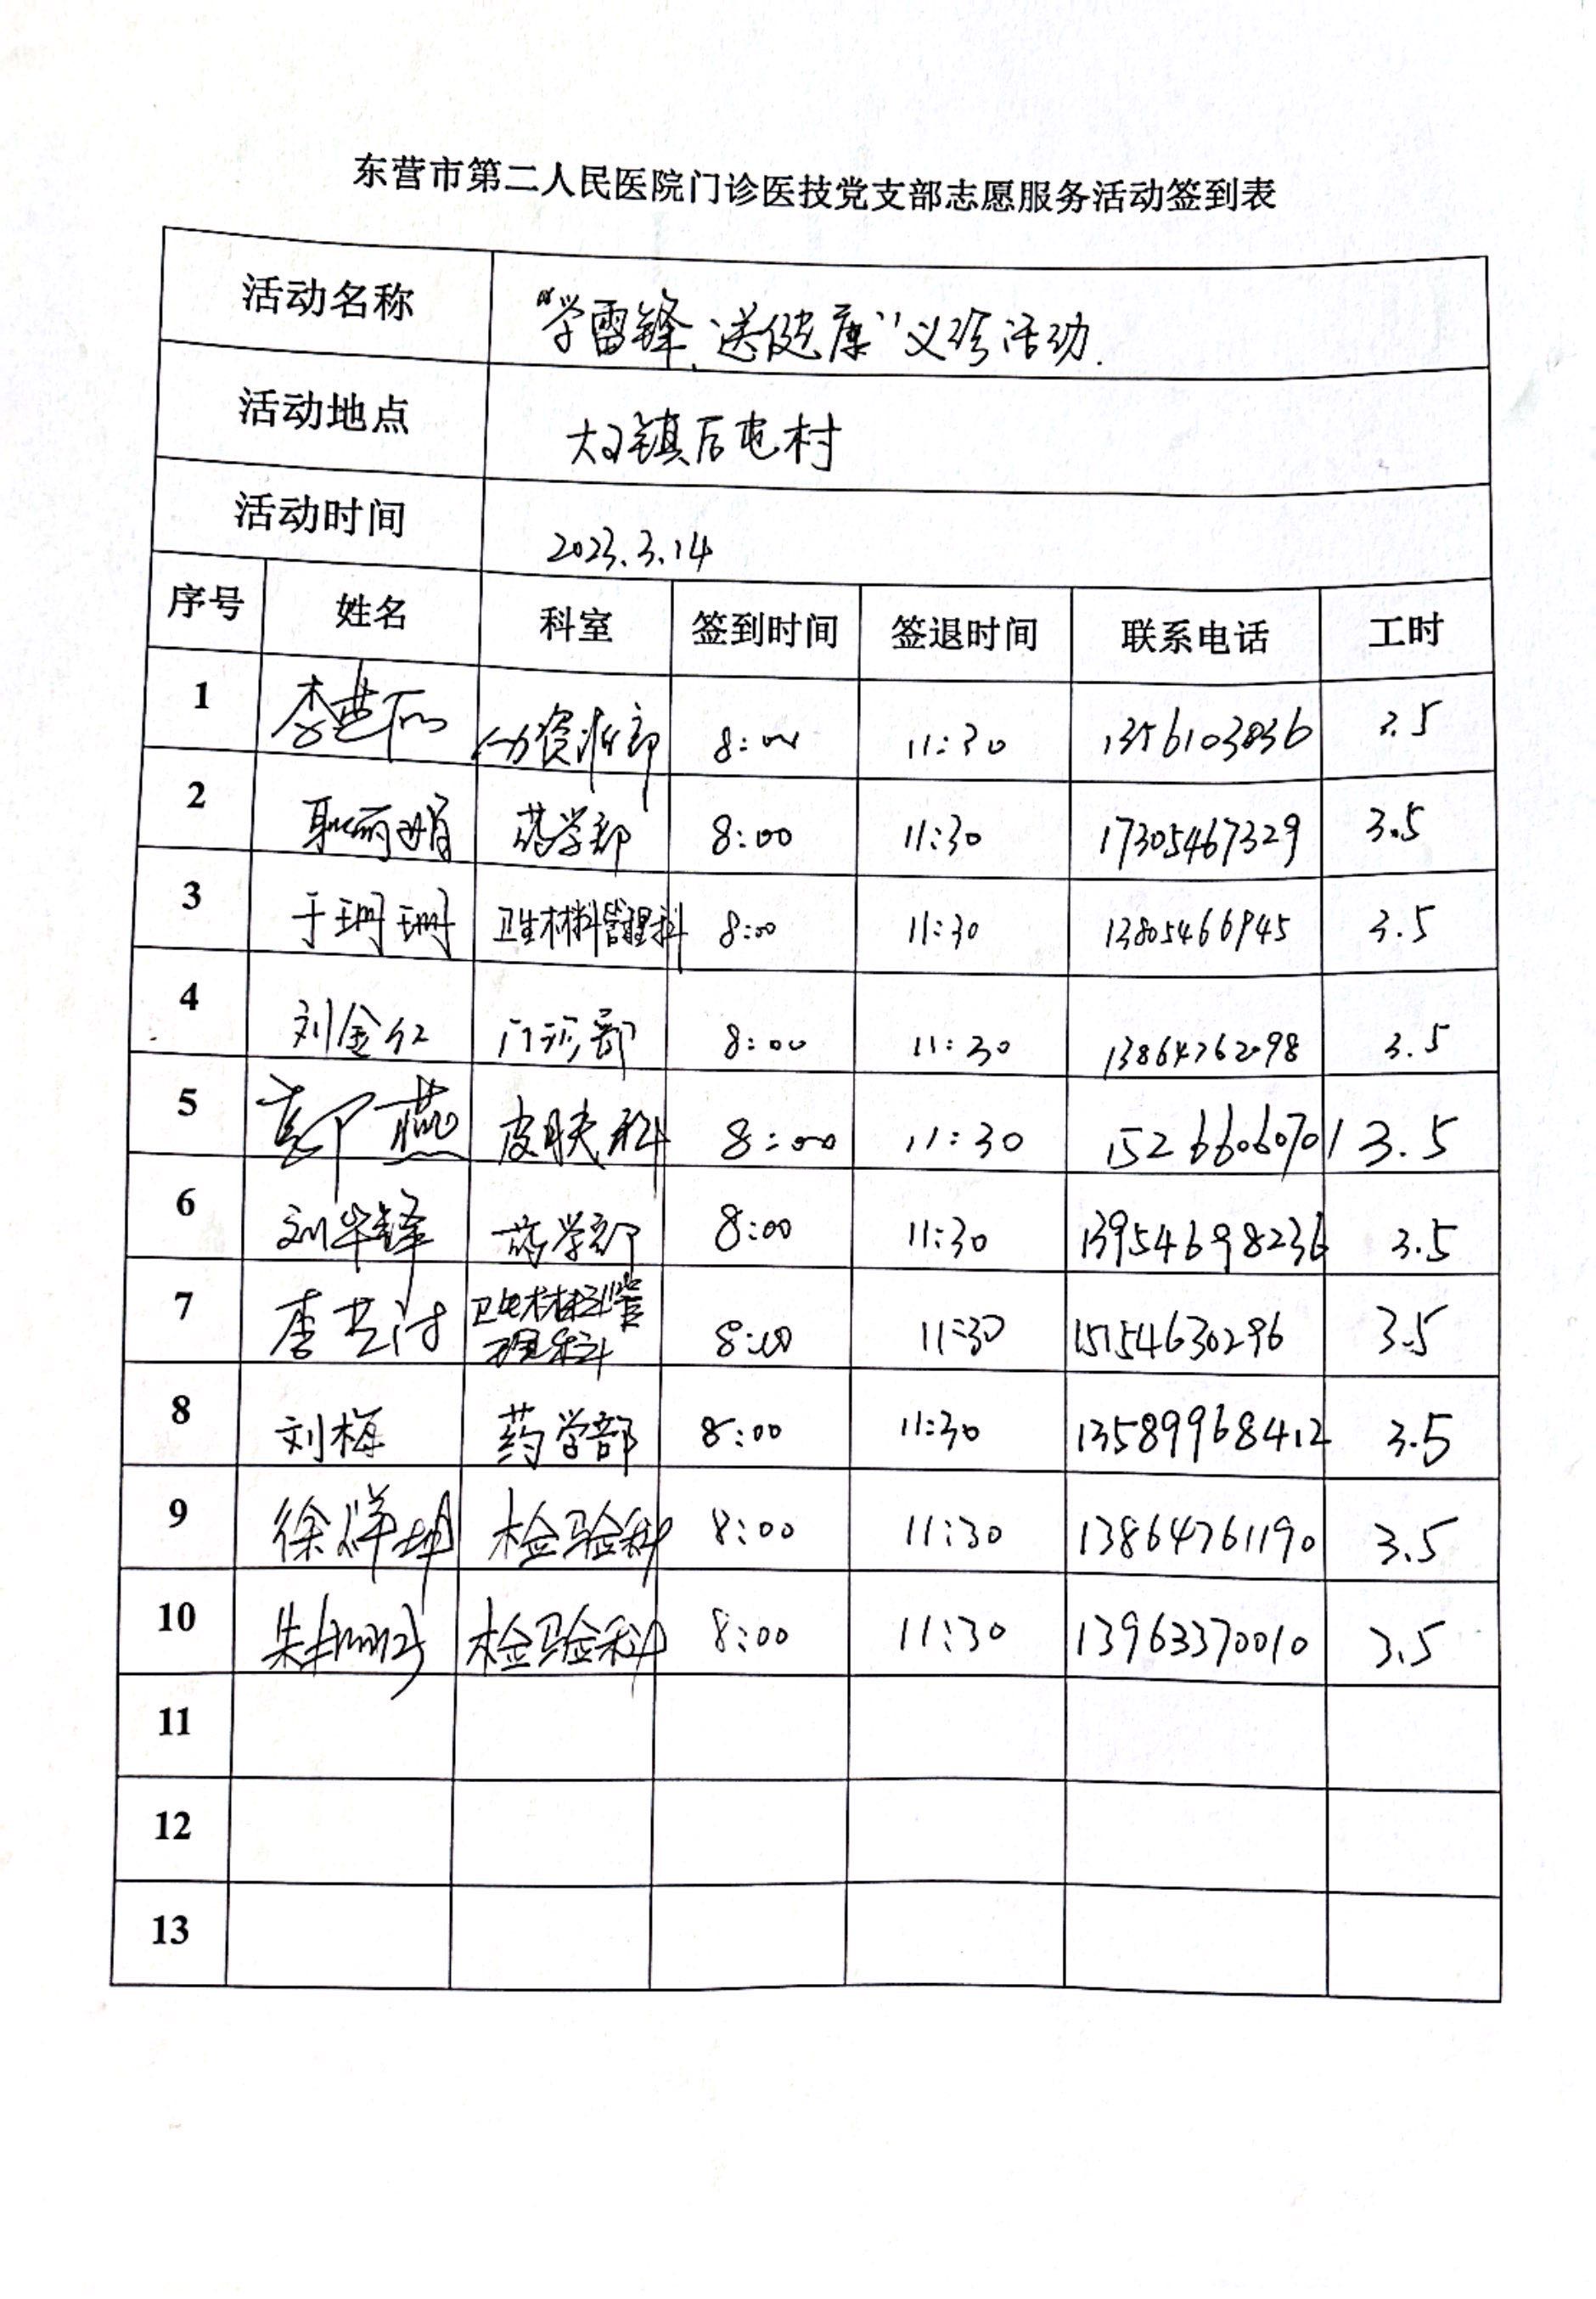 东营市第二人民医院门诊医技党支部志愿服务活动签到表
活动名称 “学雷锋、送健康”义诊活动.
活动地点 大王镇后屯村
活动时间 2023.3.14
序号 姓名 科室 签到时间 签退时间 联系电话 工时
1 8:00 11:30 3.5
2 耿丽娟 药学部 8:00 11:30 17305467329 3.5
3 于珊珊 卫生材料管理科 8:00 11:30 13805466945 3.5
4 刘金红 门诊部 8:00 11:30 13864762098 3.5
5 郭燕 皮肤科 8:00 11:30 15266606701 3.5
6 刘华锋 药学部 8:00 11:30 13954698236 3.5
7 卫生材料管理科 8:00 11:30 15154630296 3.5
8 刘梅 药学部 8:00 11:30 13589968412 3.5
9 徐祥坤 检验科 8:00 11:30 13864761190 3.5
10 检验科 8:00 11:30 13963370010 3.5
11
12
13